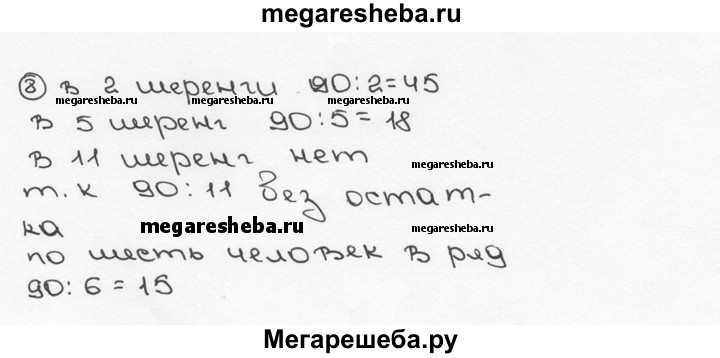 megaresheba.ru
8 в 2 шеренги 90:2=45
megaresheba.ru megaresheba.ru megaresheba.ru megaresheba.ru
в 5 шеренг 90:5=18
в 11 шеренг нет
megaresheba.ru
т.к 90:11 без остат-
ка megaresheba.ru
по шесть человек в ряд
90:6=15
Мегарешеба.ру